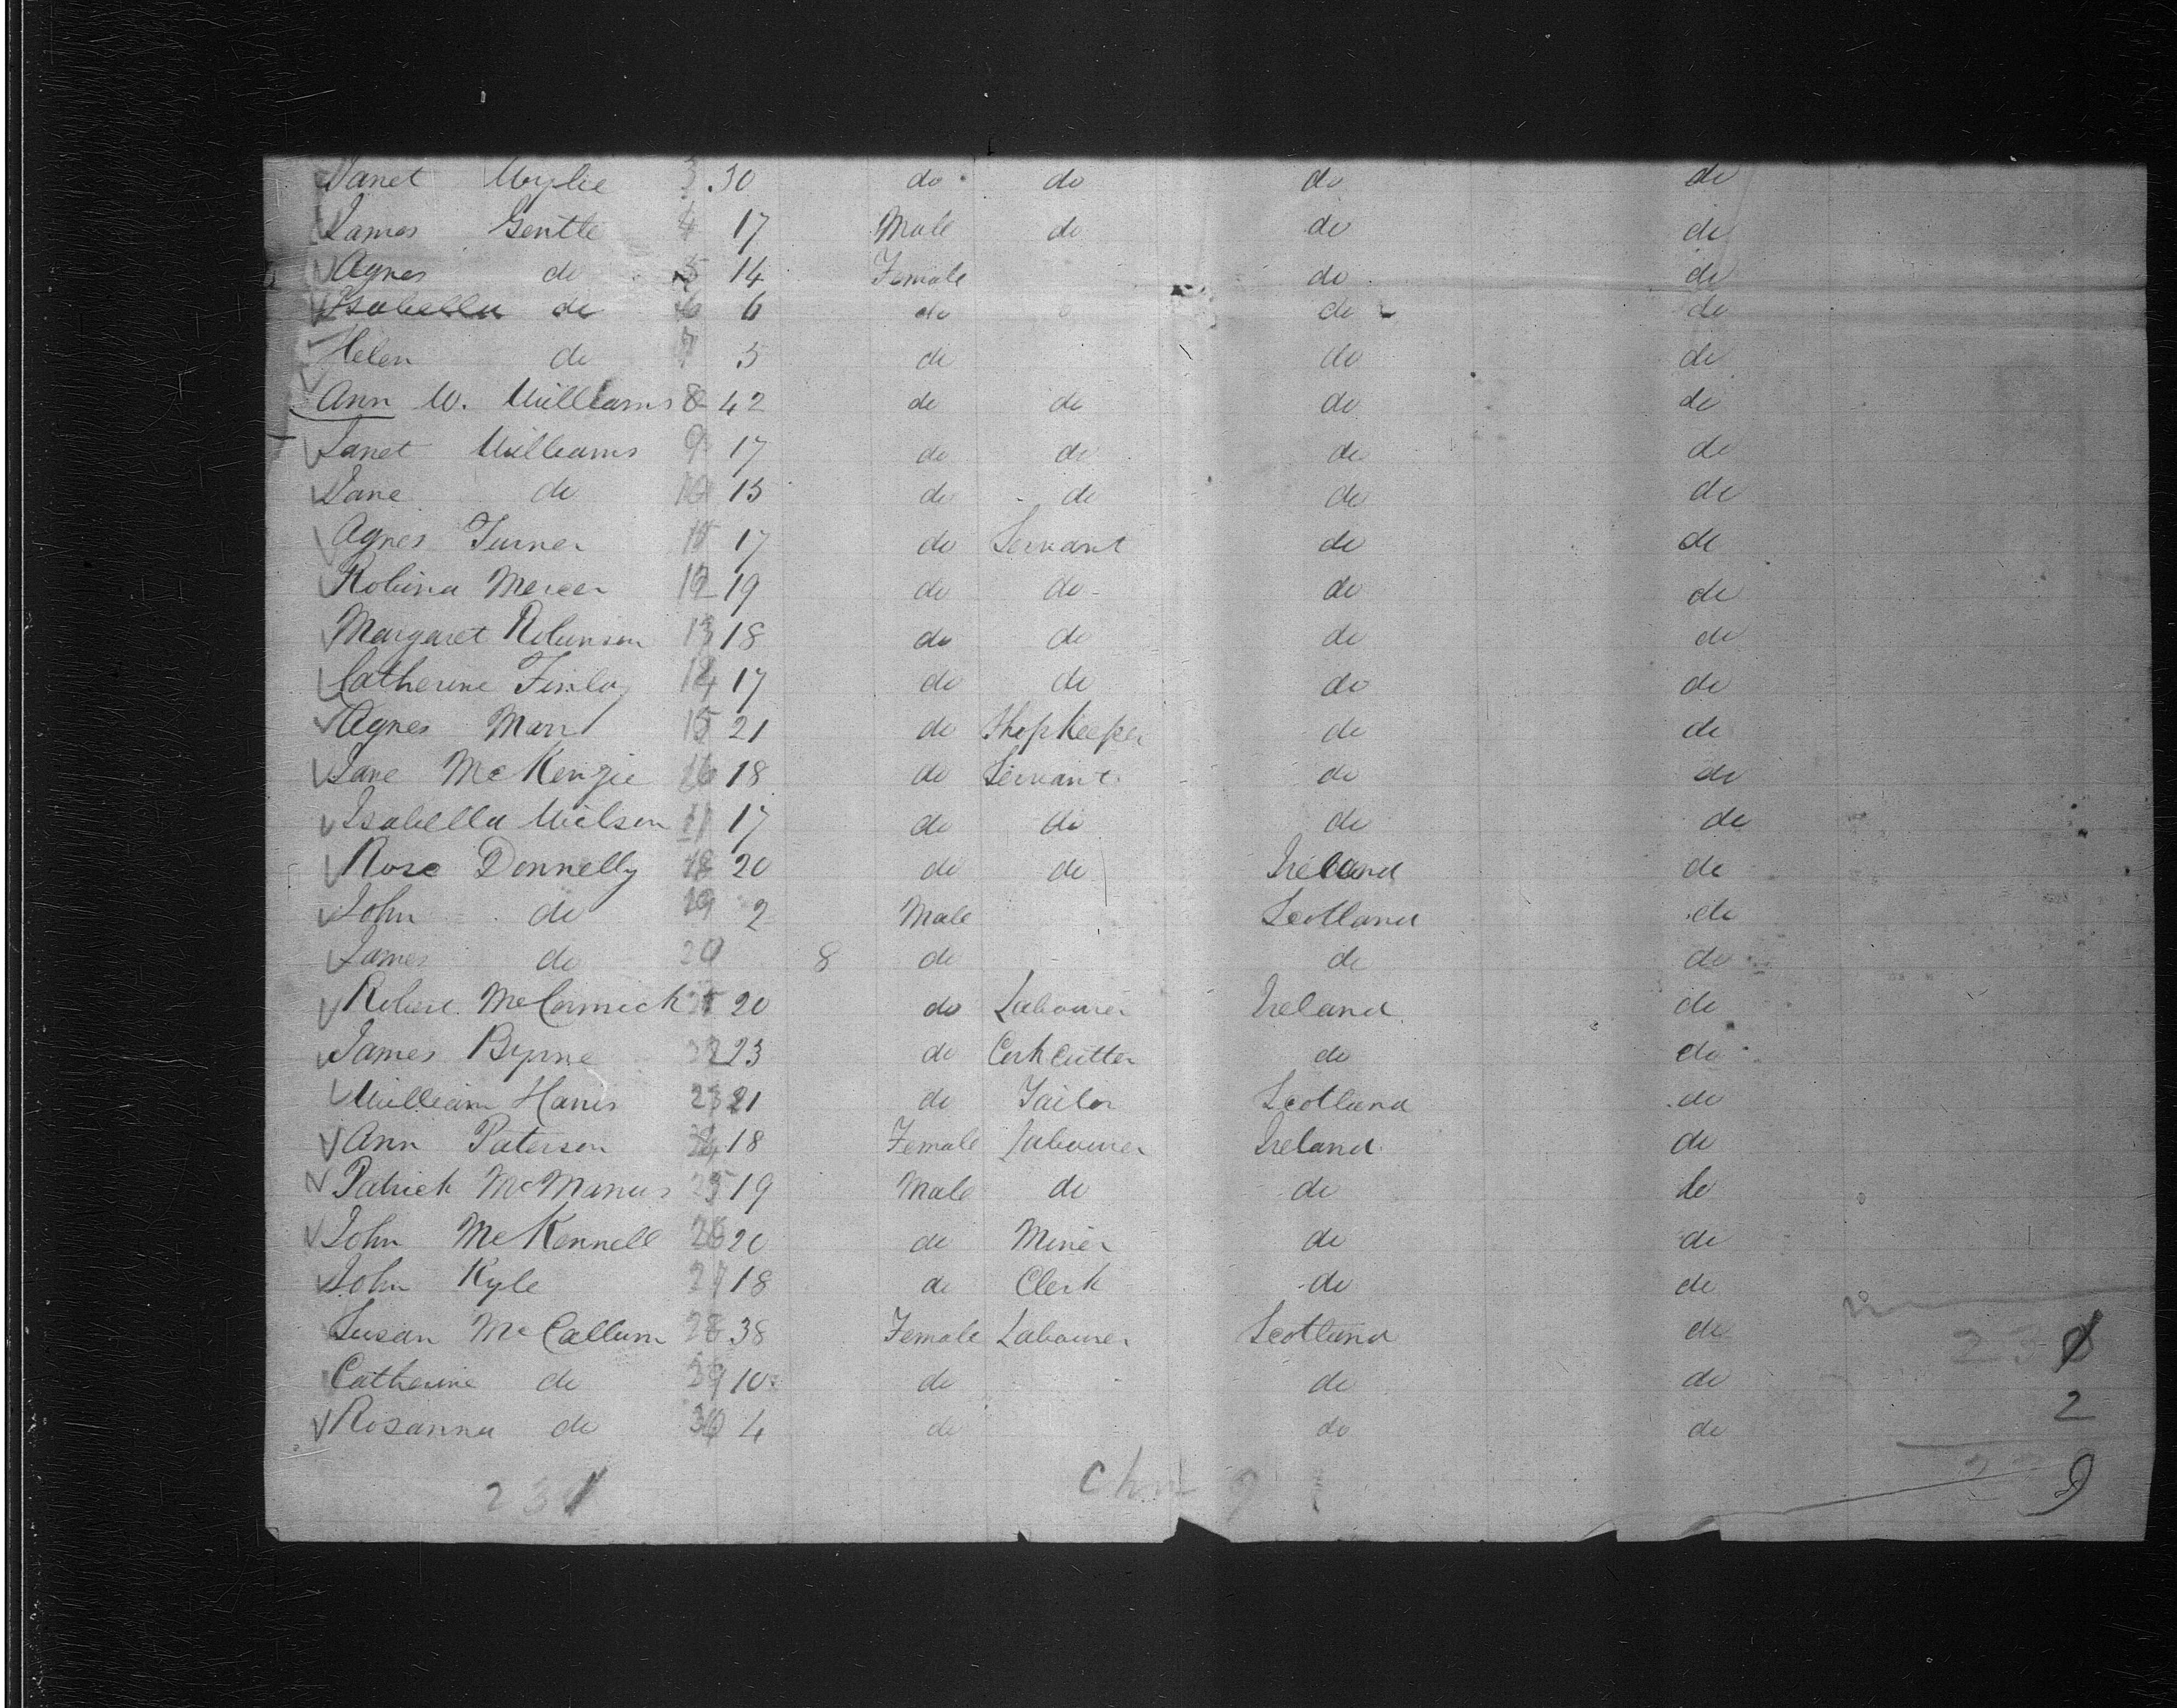 Janet Wylie 3 30 do do do do
James Gentle 4 17 Male do do do
Agnes do 5 14 Female do do
Isabella do 6 6 do do do
Helen do 7 5 do do do
Ann W. Williams 8 42 do do do do
Janet Williams 9 17 do do do do
Jane do 10 15 do do do do
Agnes Turner 11 17 do Servant do do
Robina Mercer 12 19 do do do do
Margaret Robinson 13 18 do do do do
Catherine Finlay 14 17 do do do do
Agnes Marr 15 21 do Shopkeeper do do
Jane McKenzie 16 18 do Servant do do
Isabella Wilson 17 17 do do do do
Rose Donnelly 18 20 do do Ireland do
John do 19 2 Male Scotland do
James do 20 8 do do do
Robert McCormick 21 20 do Labourer Ireland do
James Byrne 22 23 do Corkcutter do do
William Harris 23 21 do Tailor Scotland do
Ann Paterson 24 18 Female Labourer Ireland do
Patrick McManus 25 19 Male do do do
John McKennell 26 20 do Miner do do
John Kyle 27 18 do Clerk do do
Susan McCallum 28 38 Female Labourer Scotland do
Catherine do 29 10 do do do
Rosanna do 30 4 do do do
2
231 9